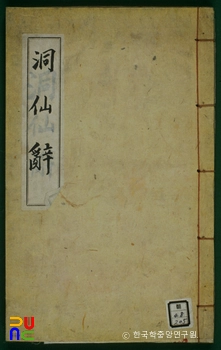 洞仙辭
© 한국학중앙연구원